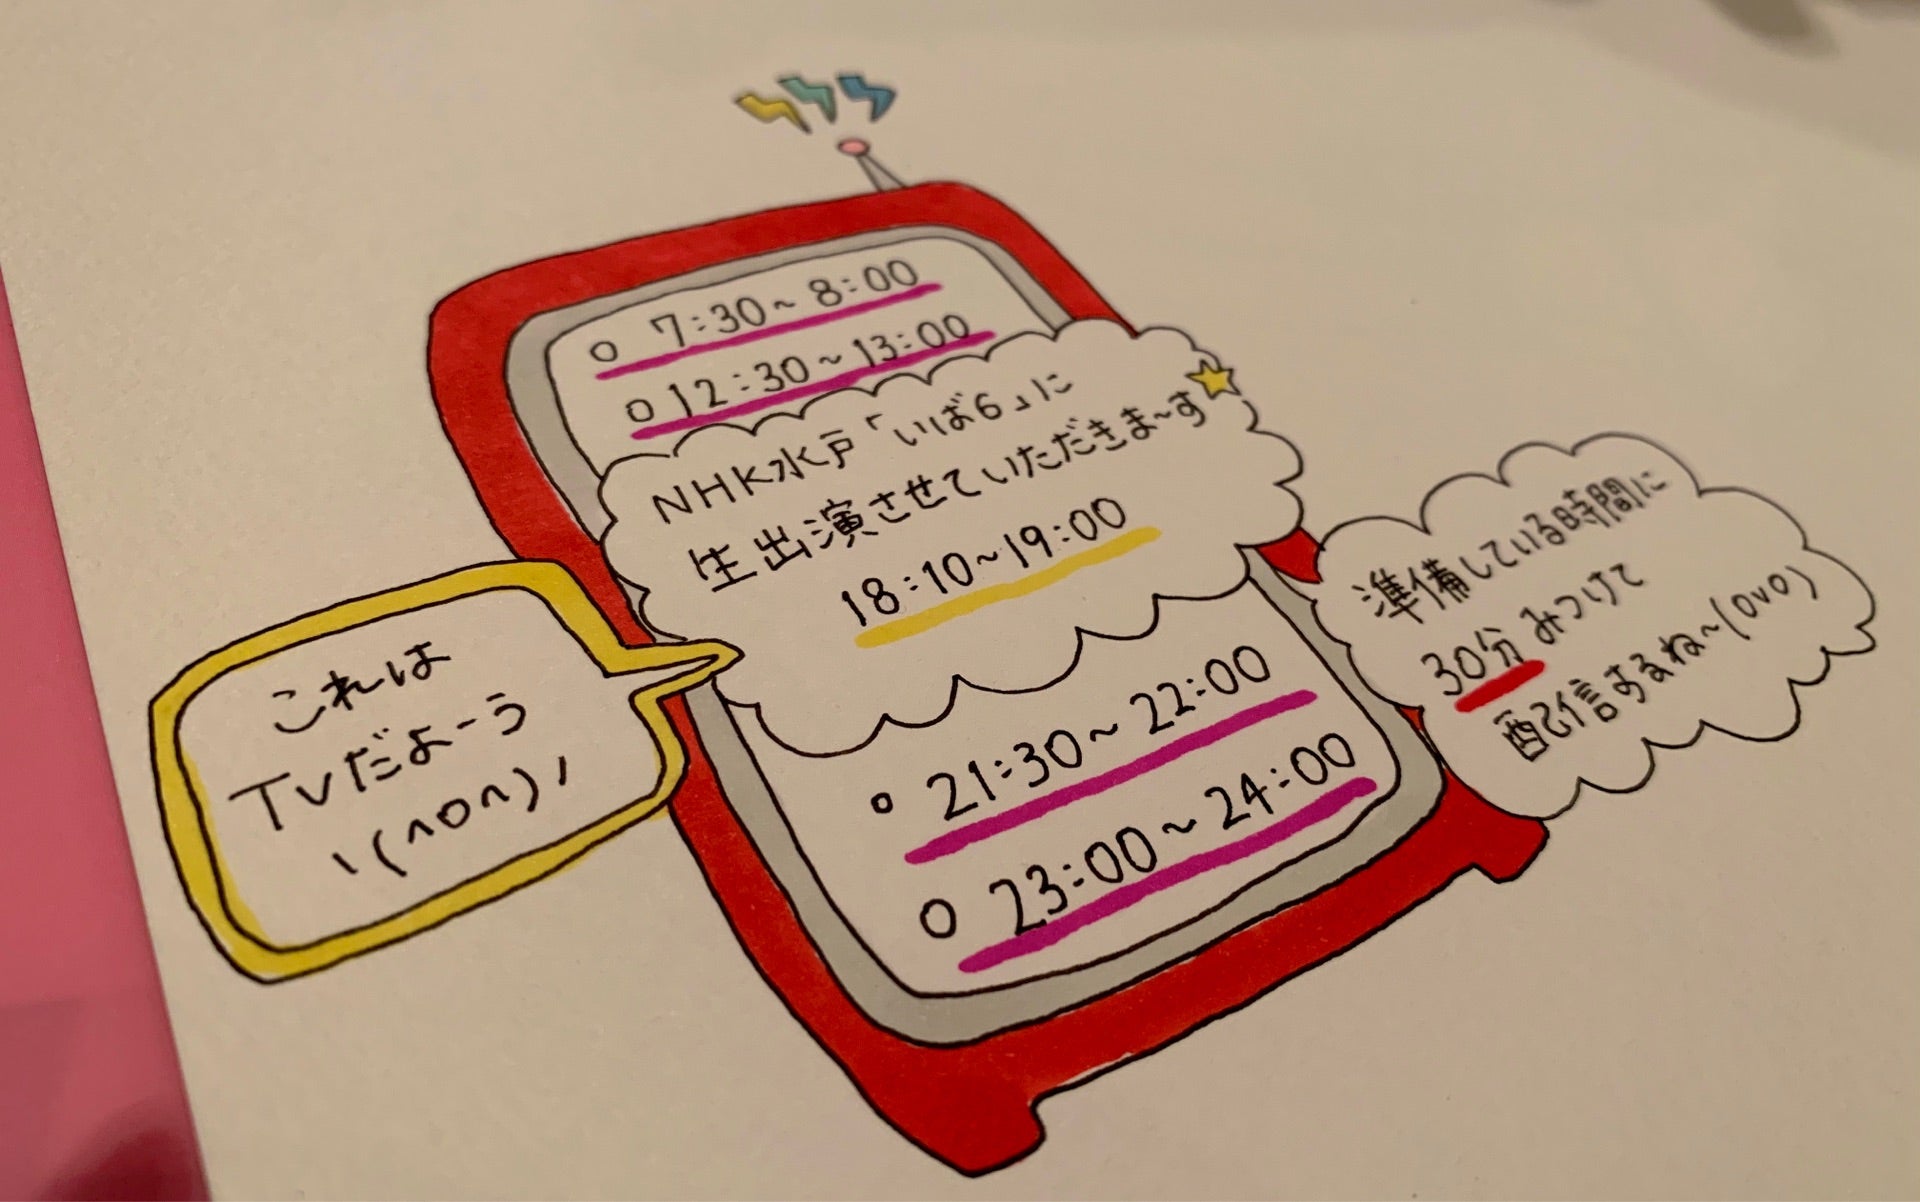 ○ 7:30~8:00
○ 12:30~13:00
NHK水戸「いば6」に
生出演させていただきま~す
18:10~19:00
これは
TVだよーう
ヽ(^O^)ノ
準備している時間に
30分みつけて
配信するね~(OVO)
○ 21:30~22:00
○ 23:00~24:00